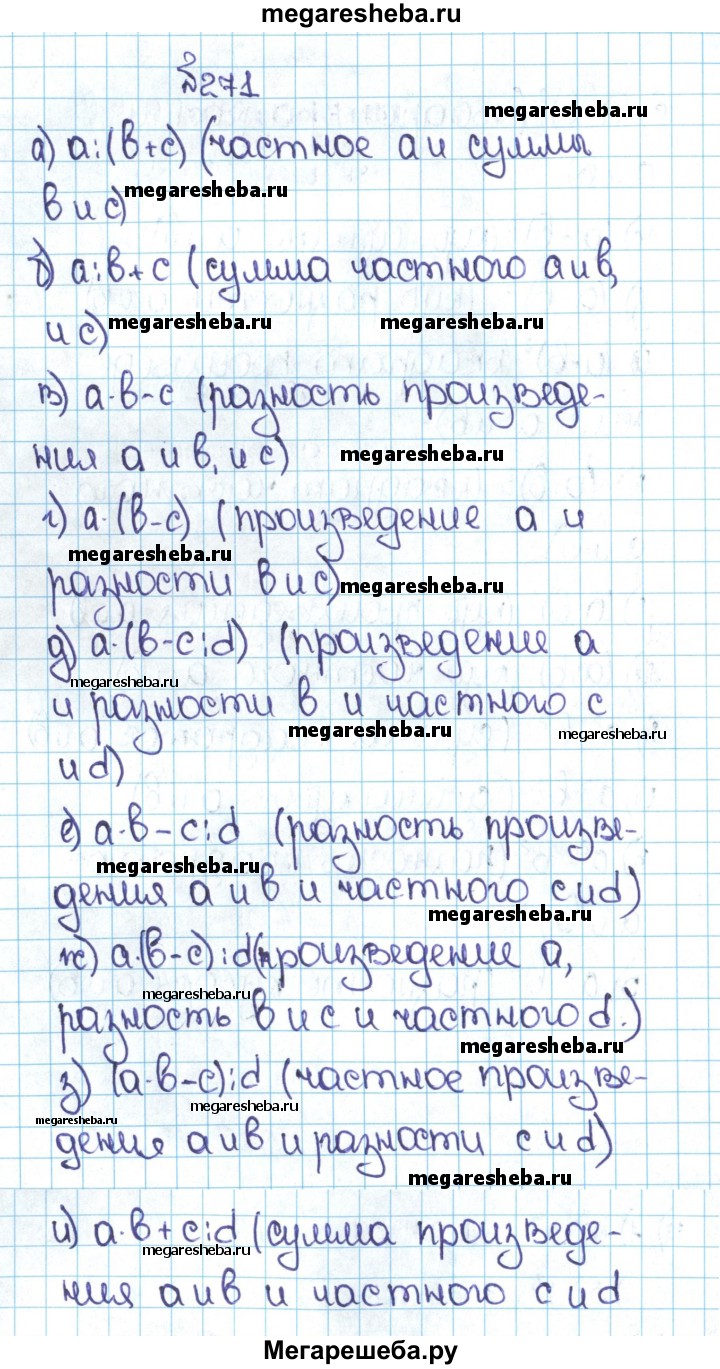 megaresheba.ru
№271
megaresheba.ru
а) a:(в+c) (частное a и суммы
megaresheba.ru
в и c)
б) a:в+c (сумма частного a и в,
и c)
megaresheba.ru megaresheba.ru
в) a·в-c (разность произведе-
ния a и в, и c)
megaresheba.ru
г) a·(в-c) (произведение a и
megaresheba.ru
разности в и c)
megaresheba.ru
д) a·(в-c:d) (произведение a
megaresheba.ru
и разности в и частного c
megaresheba.ru megaresheba.ru
и d)
е) a·в-c:d (разность произве-
megaresheba.ru
дения a и в и частного c и d)
megaresheba.ru
ж) a·(в-c):d(произведение a,
megaresheba.ru
разность в и c и частного d.)
megaresheba.ru
з) (a·в-c):d (частное произве-
megaresheba.ru
megaresheba.ru
дения a и в и разности c и d)
megaresheba.ru
и) a·в+c:d (сумма произведе-
megaresheba.ru
ния a и в и частного c и d
Мегарешеба.ру